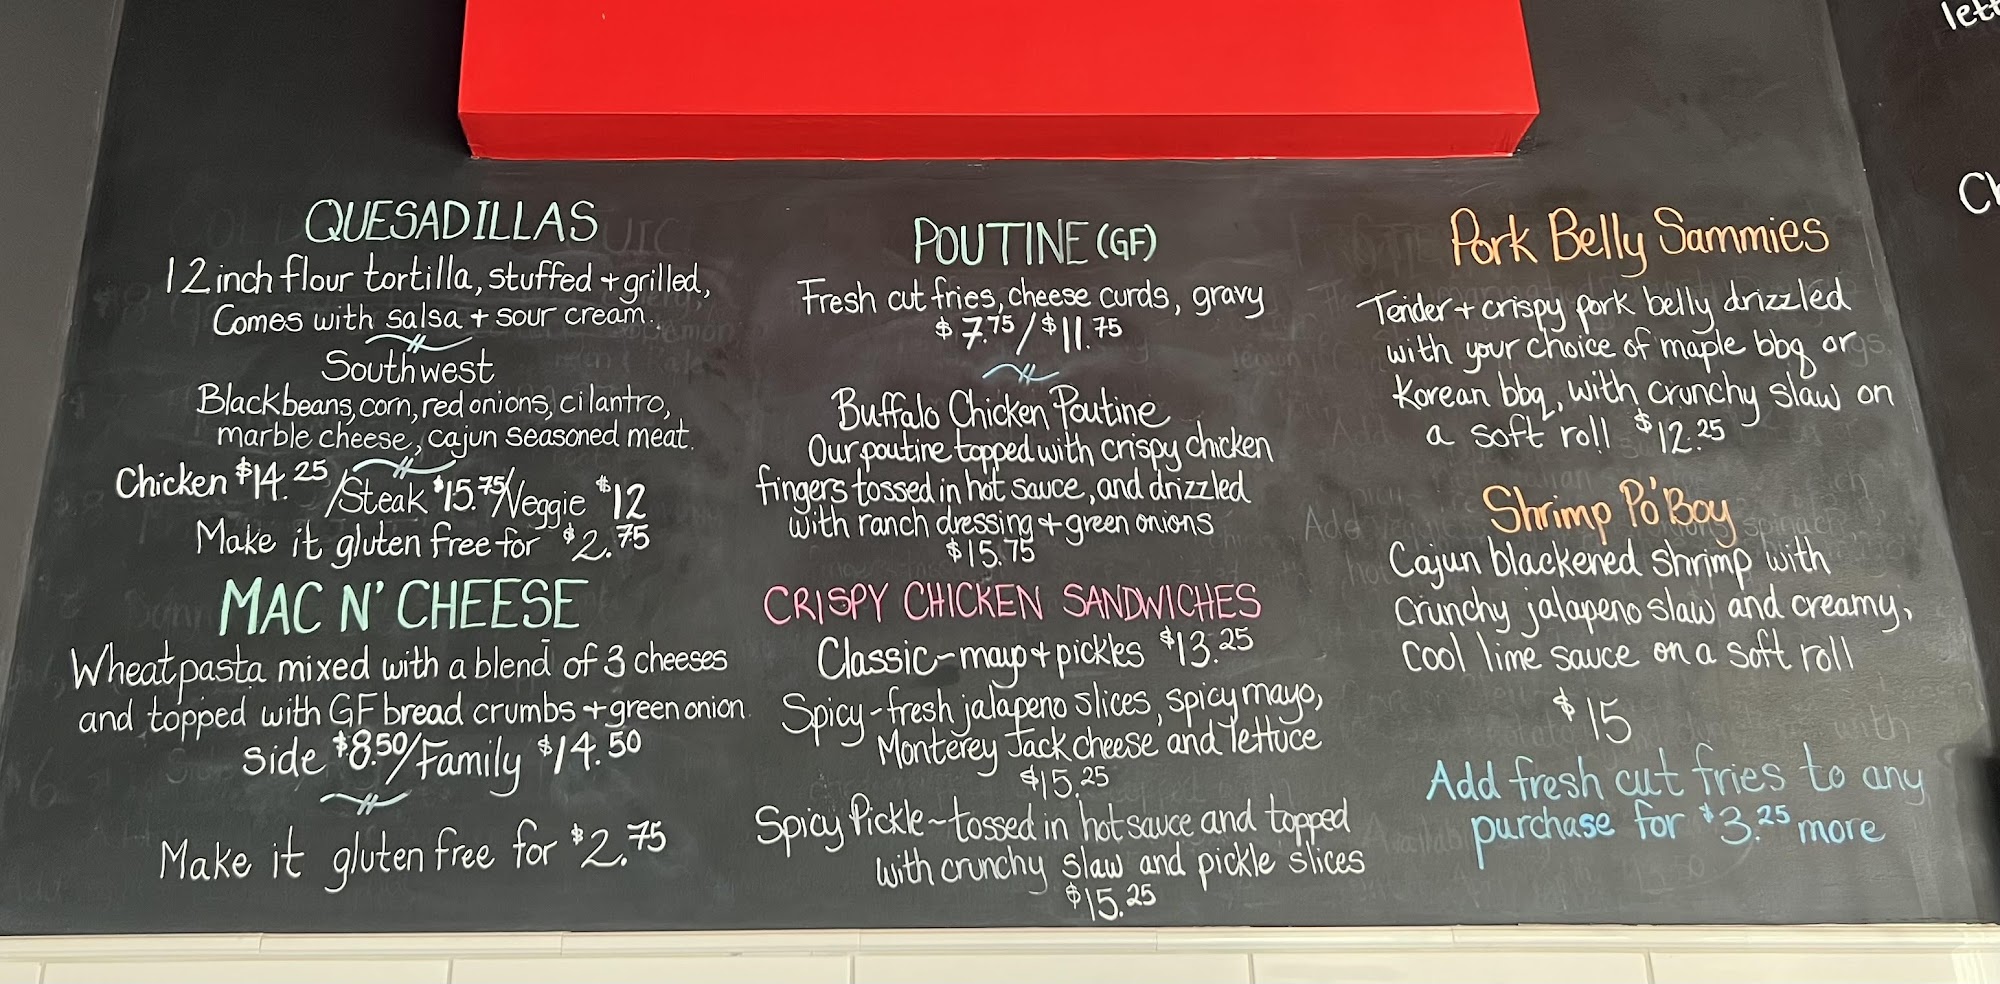 QUESADILLAS
12 inch flour tortilla, stuffed + grilled,
Comes with salsa + sour cream.
Southwest
Black beans, corn, red onions, cilantro,
marble cheese, cajun seasoned meat.
Chicken $14.25/Steak $15.75/Veggie $12
Make it gluten free for $2.75
MAC N' CHEESE
Wheat pasta mixed with a blend of 3 cheeses
and topped with GF bread crumbs + green onion
side $8.50/Family $14.50
Make it gluten free for $2.75
POUTINE (GF)
Fresh cut fries, cheese curds, gravy
$7.75/$11.75
Buffalo Chicken Poutine
Our poutine topped with crispy chicken
fingers tossed in hot sauce, and drizzled
with ranch dressing + green onions
$15.75
CRISPY CHICKEN SANDWICHES
Classic - mayo + pickles $13.25
Spicy - fresh jalapeno slices, spicy mayo,
Monterey Jack cheese and lettuce
$15.25
Spicy Pickle - tossed in hot sauce and topped
with crunchy slaw and pickle slices
$15.25
Pork Belly Sammies
Tender + crispy pork belly drizzled
with your choice of maple bbq or
Korean bbq, with crunchy slaw on
a soft roll $12.25
Shrimp Po'Boy
Cajun blackened shrimp with
Crunchy jalapeno slaw and creamy,
Cool lime sauce on a soft roll
$15
Add fresh cut fries to any
purchase for $3.25 more